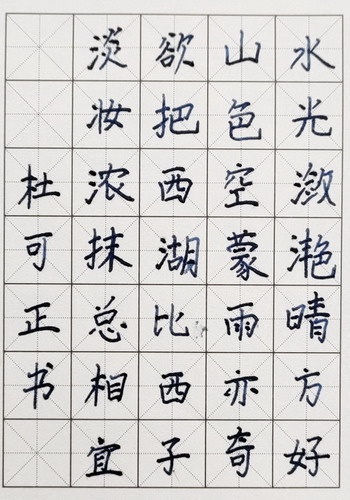 水光潋滟晴方好
山色空蒙雨亦奇
欲把西湖比西子
淡妆浓抹总相宜
杜可正书